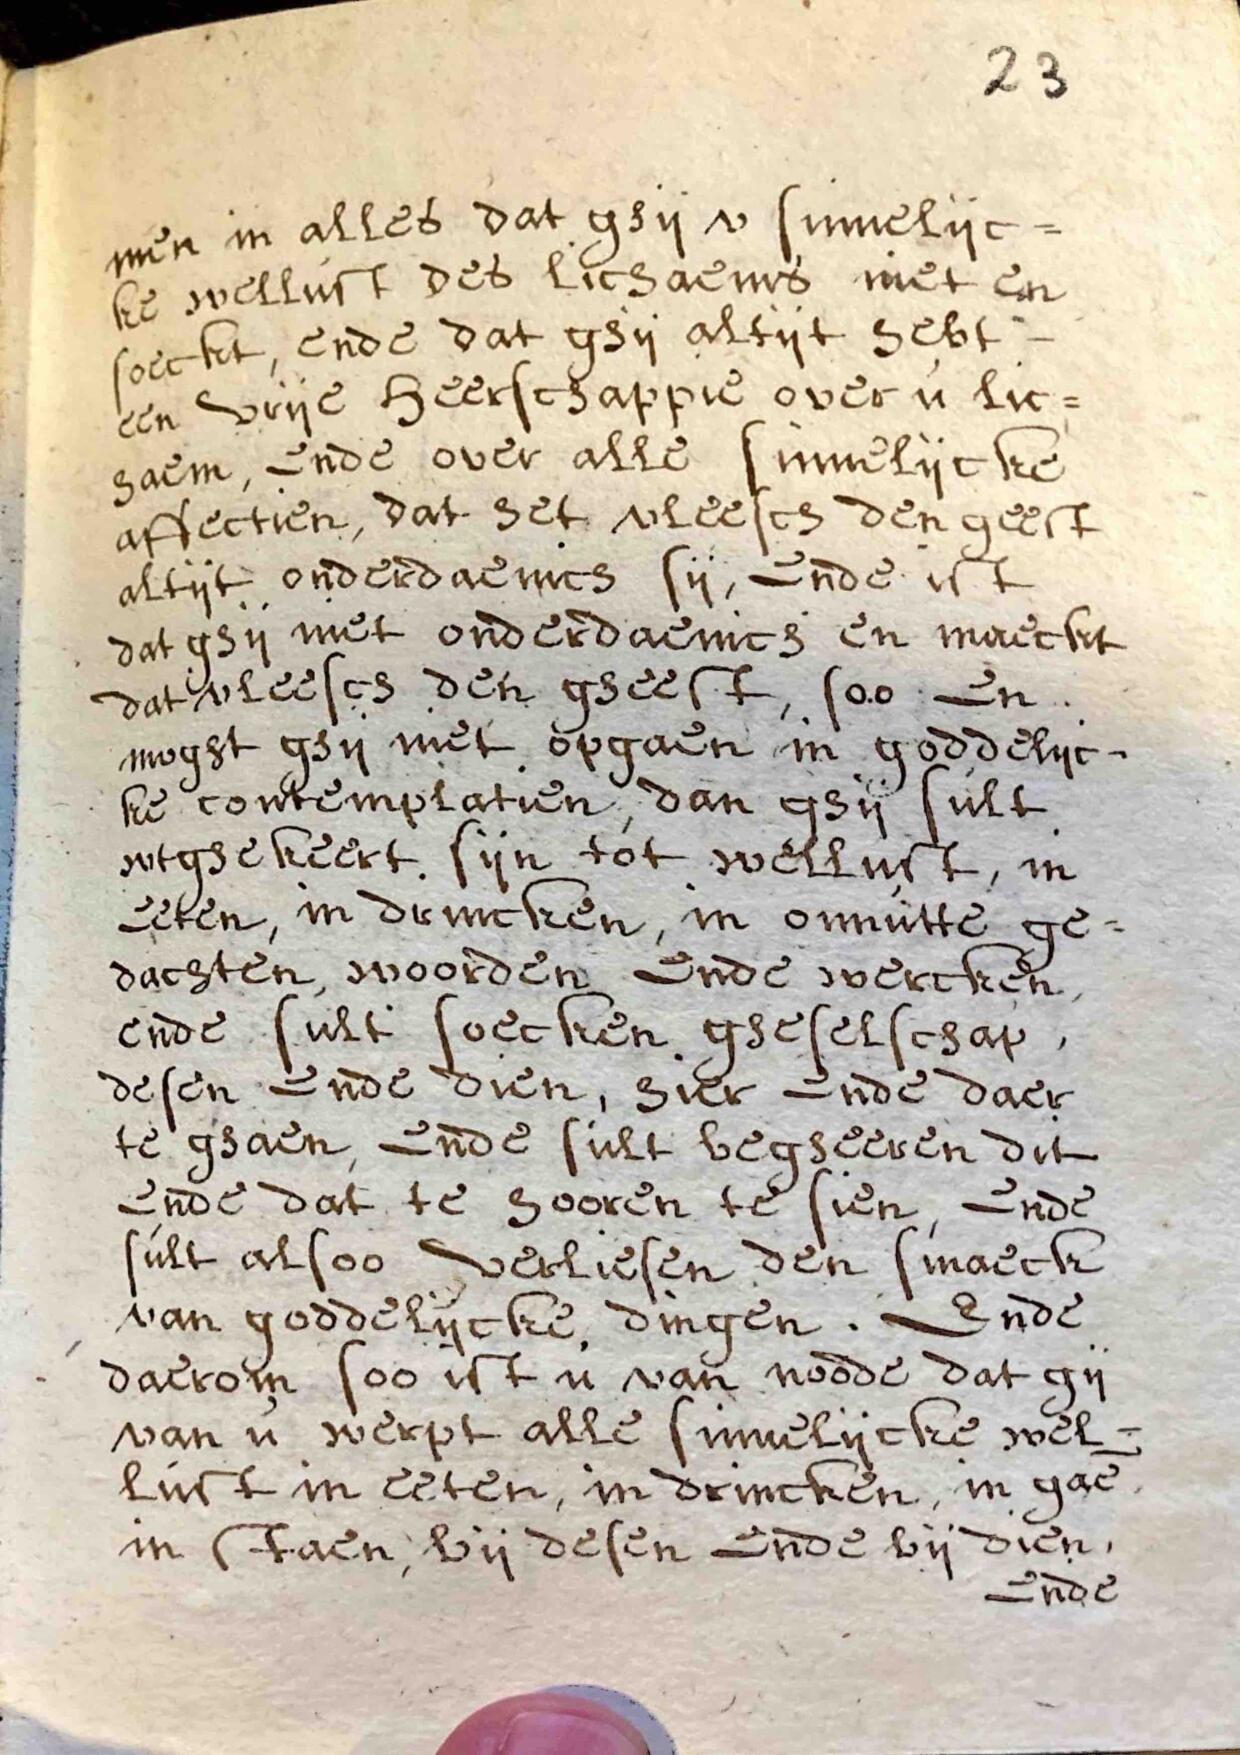 23
men in alles dat ghij v sinnelijc=
ke wellust des lichaems niet en
soeckt, ende dat ghij altijt hebt -
een vrije Heerschappie over u lic=
haem, Ende over alle sinnelijcke
affectien, dat het vleesch den geest
altijt onderdaenich sij, Ende ist
dat ghij niet onderdaenich en maeckt
dat vleesch den gheest, soo En
moght ghij niet opgaen in goddelijc-
ke contemplatien, dan ghij sult
wtghekeert sijn tot wellust, in
Eeten, in drincken, in onnutte ge=
dachten, woorden Ende wercken,
ende sult soecken gheselschap,
desen Ende dien, hier Ende daer
te ghaen, Ende sult begheeren dit
Ende dat te hooren te sien, Ende
sult alsoo verliesen den smaeck
van goddelijcke dingen. Ende
daerom soo ist u van noode dat gij
van u werpt alle sinnelijcke wel=
lust in eeten, in drincken, in gaē
in staen, bij desen Ende bij dien,
Ende